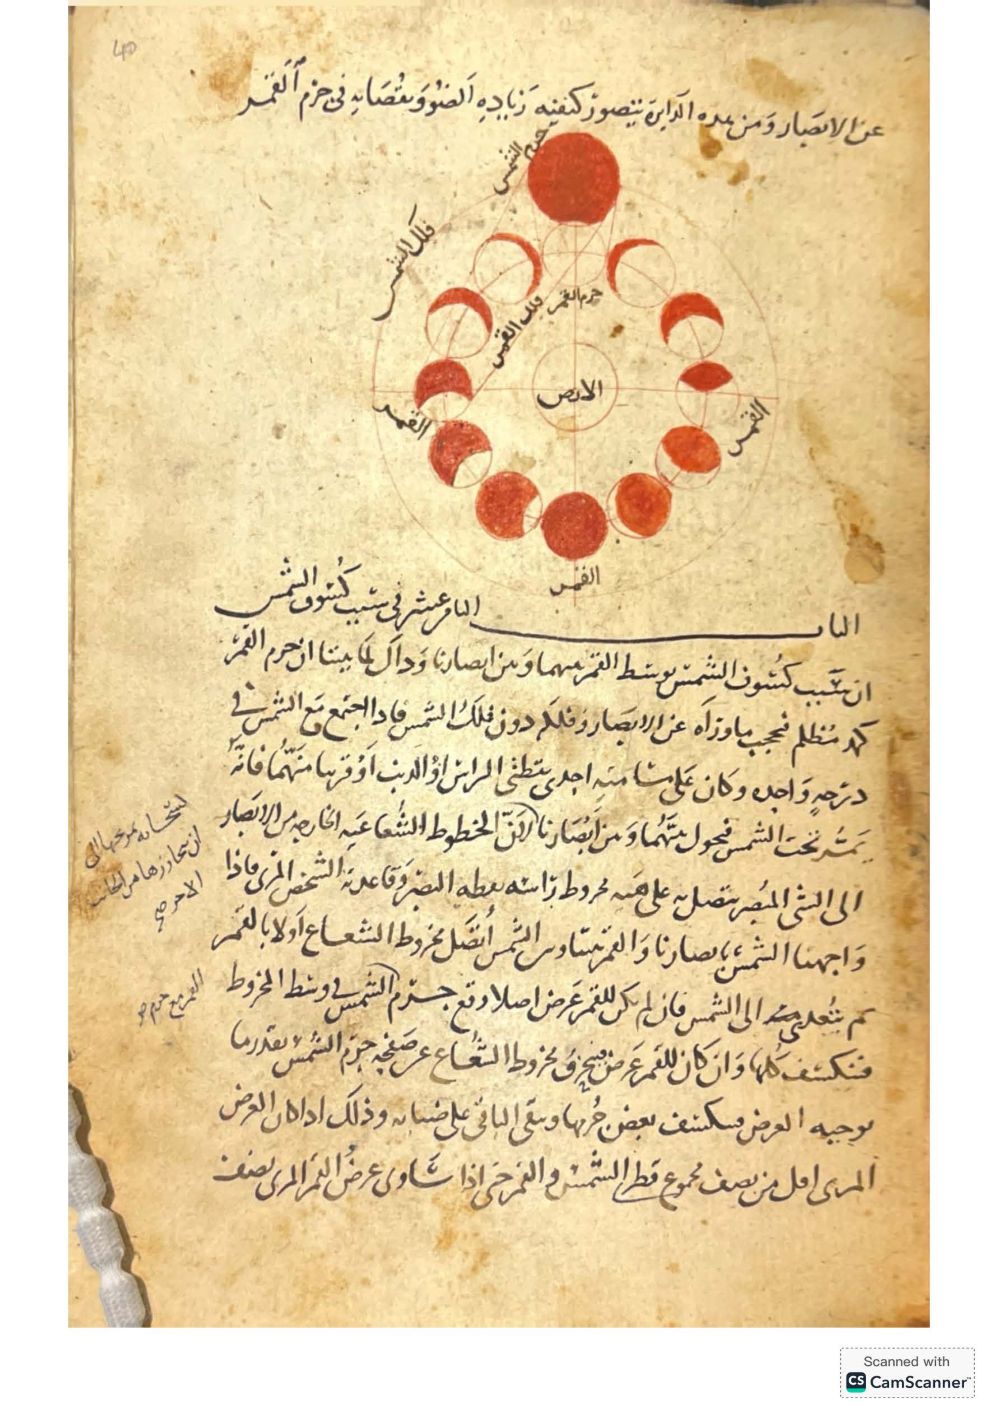 40
عن الابصار ومن هذه الدايرة يتصور كيفية زيادة الضوء ونقصانه في جرم القمر
جرم الشمس
فلك الشمس
جرم القمر
فلك القمر
الارض
القمر
القمر
القمر
الباب الثامن عشر في سبب كسوف الشمس
ان سبب كسوف الشمس توسط القمر بينها وبين ابصارنا وذاك لما بينا ان جرم القمر
كمد مظلم فيحجب ما وراه عن الابصار وفلكه دون فلك الشمس فاذا اجتمع مع الشمس في
درجة واحدة وكان على مسامتة احدى نقطتي الراس او الذنب او قريبا منهما فانه
يمر تحت الشمس فيحول بينها وبين ابصارنا لان الخطوط الشعاعية الخارجة من الابصار
الى الشي المبصر يتصل به على هيئة مخروط راسه نقطه البصر وقاعدته الشخص المرى فاذا
واجهنا الشمس بابصارنا والقمر بيننا وبين الشمس اتصل مخروط الشعاع اولا بالقمر
ثم يتعدى منه الى الشمس فان لم يكن للقمر عرض اصلا وقع جرم الشمس في وسط المخروط
فتنكسف كلها وان كان للقمر عرض فينحرف مخروط الشعاع عن صفحة جرم الشمس بقدر ما
يوجبه العرض فينكسف بعض جرمها ويبقى الباقي على ضيائه وذلك اذا كان العرض
المرى اقل من نصف مجموع قطر الشمس والقمر حتى اذا تساوى عرض القمر المرى نصف
ان يجاوزها من الجانب
الاخر صح
Scanned with
CS CamScanner